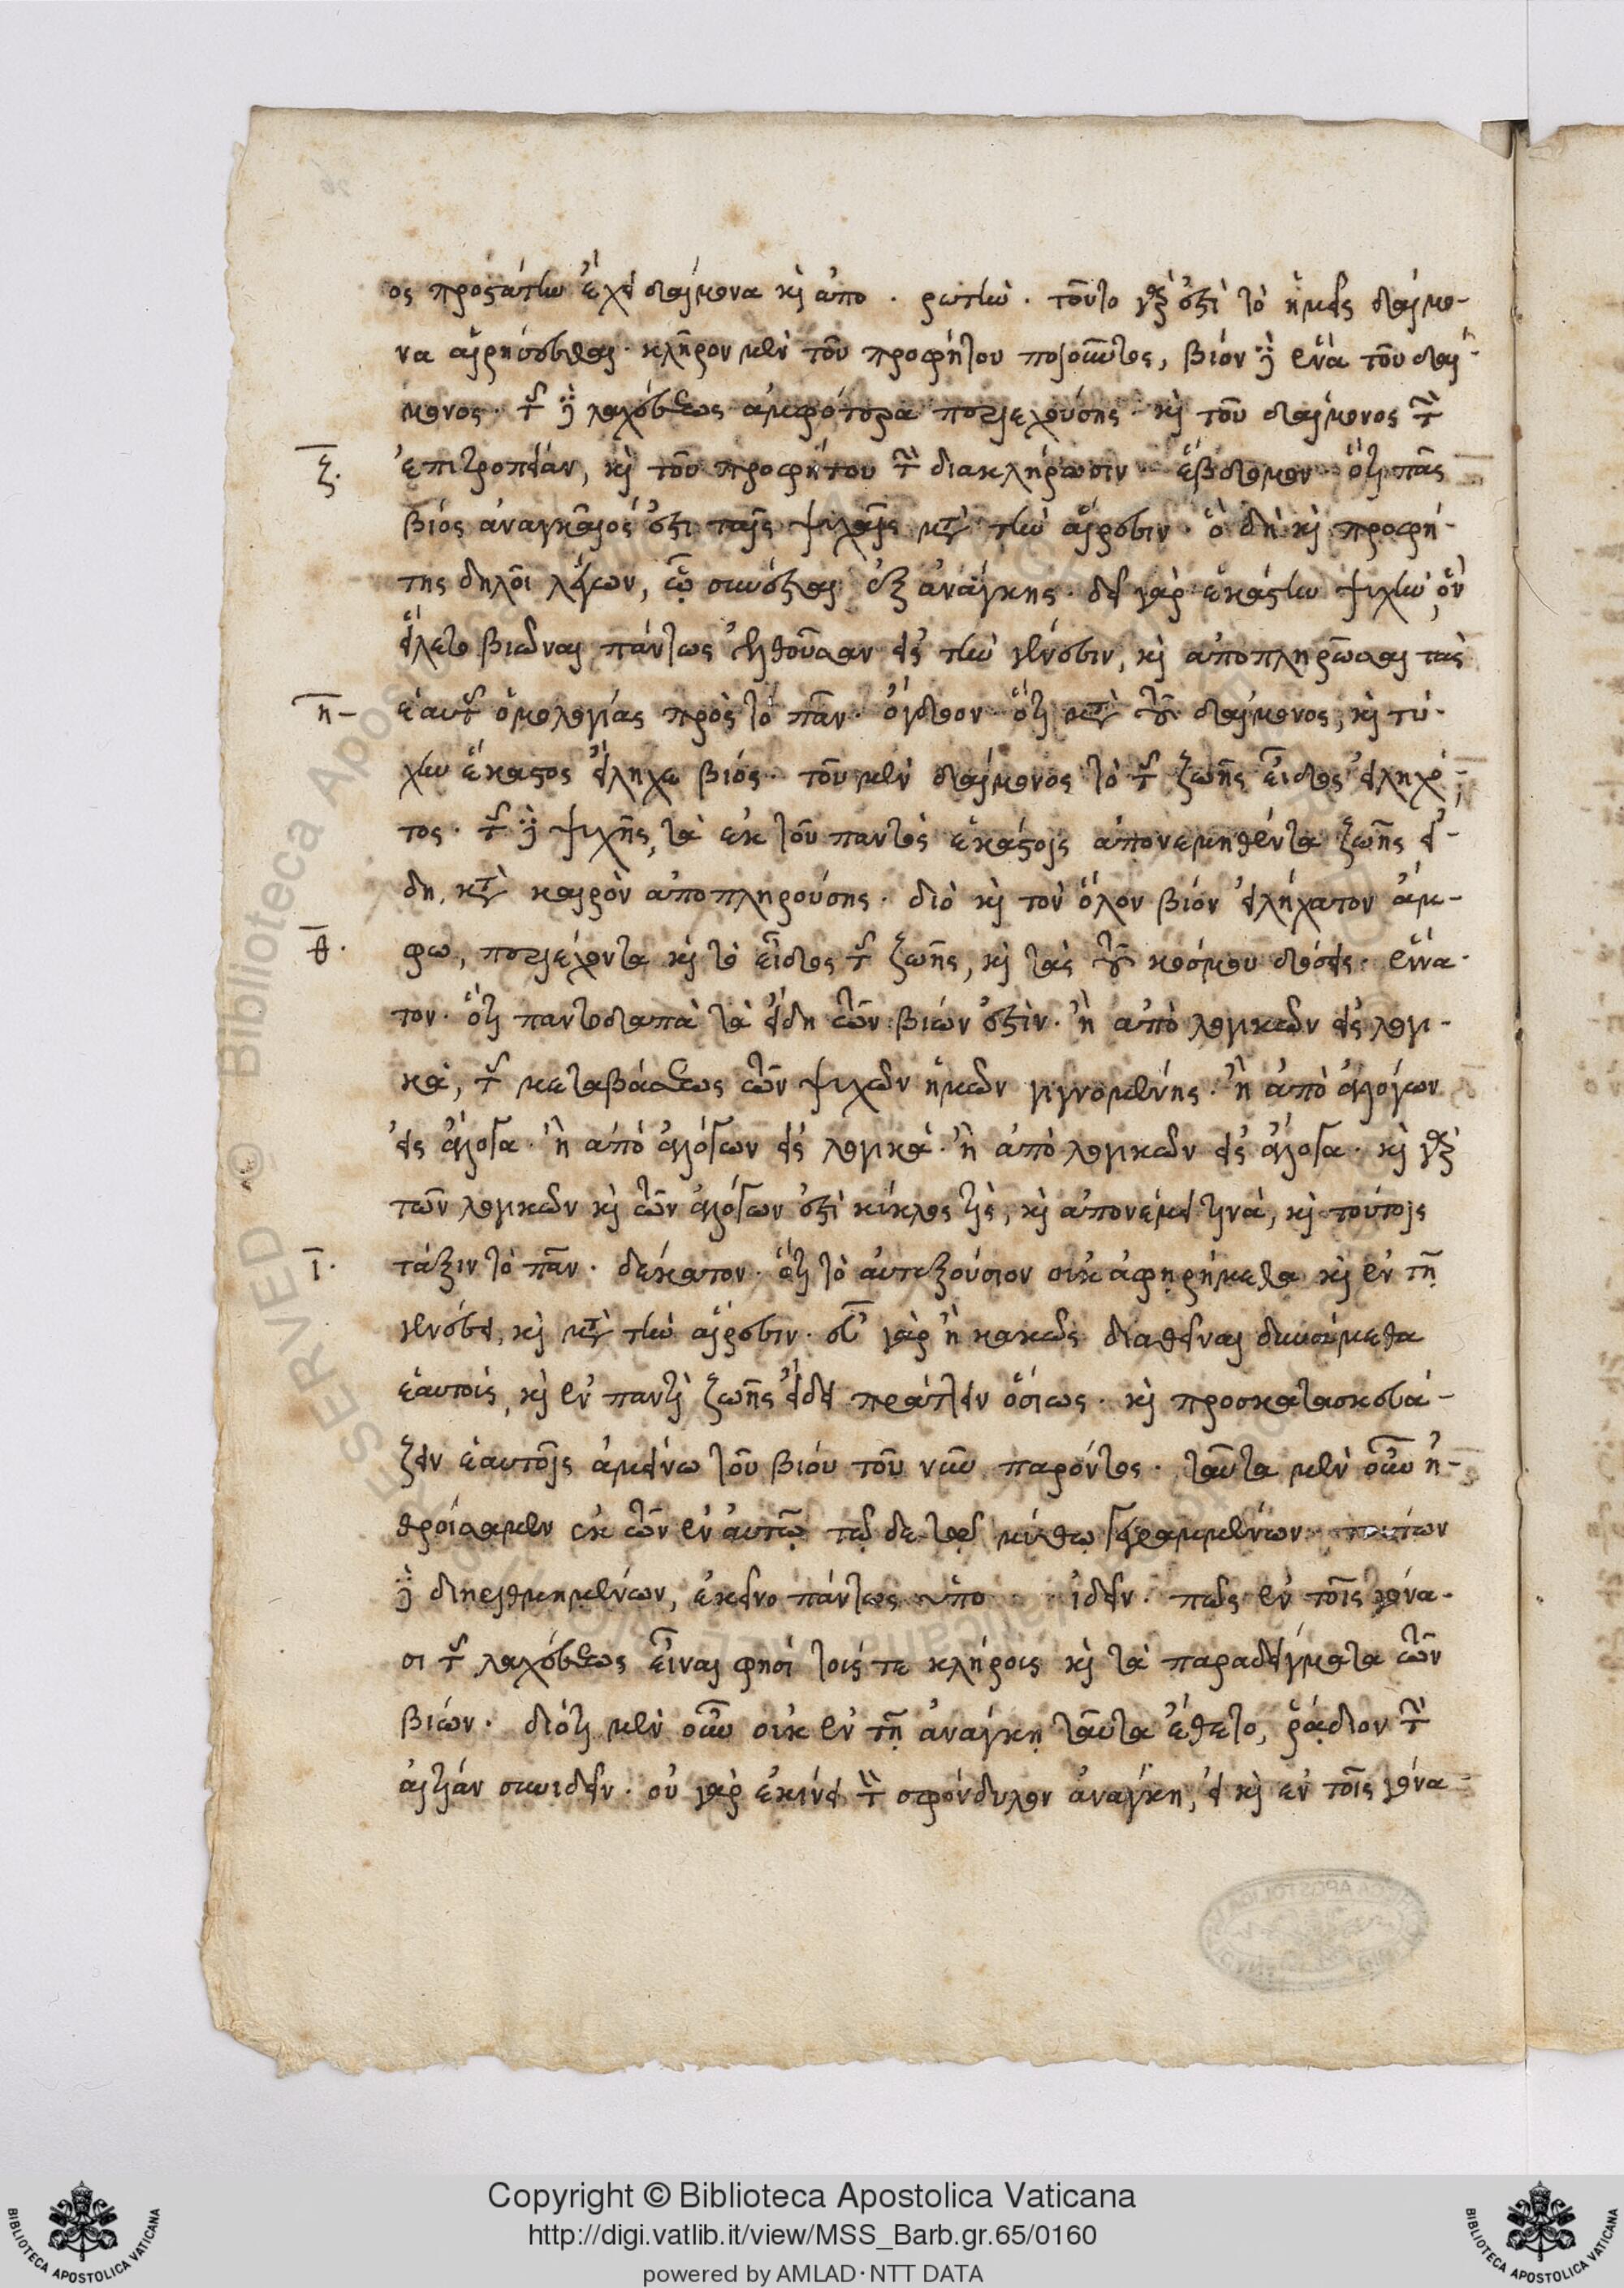 ος προστάτην ἔχει δαίμονα καὶ ἀπο . ρωτήν . τοῦτο γάρ ἐστι τὸ ἡμᾶς δαίμο-
να αἱρήσεσθαι· κλῆρον μὲν τοῦ προφήτου ποιοῦντος, βίον δὲ ἕνα τοῦ δαί-
μονος. τῆς δὲ λαχέσεως ἀμφότερα περιεχούσης. καὶ τοῦ δαίμονος τὴν
ζ. ἐπιτροπείαν, καὶ τοῦ προφήτου τὴν διακλήρωσιν. ἕβδομον. ὅτι πᾶς
βίος ἀναγκαῖός ἐστι ταῖς ψυχαῖς μετὰ τὴν αἵρεσιν. ὃ δὴ καὶ προφή-
της δηλοῖ λέγων, ᾧ συνέσται ἐξ ἀνάγκης. δεῖ γὰρ ἑκάστην ψυχὴν, ὃν
εἵλετο βιῶναι πάντως ἐλθοῦσαν εἰς τὴν γένεσιν, καὶ ἀποπληρῶσαι τὰς
η- ἑαυτῆς ὁμολογίας πρὸς τὸ πᾶν. ὄγδοον. ὅτι μετὰ τοῦ δαίμονος, καὶ τύ-
χην ἕκαστος εἴληχε βίος. τοῦ μὲν δαίμονος τὸ τῆς ζωῆς εἶδος εἰληχό-
τος. τῆς δὲ ψυχῆς, τὰ ἐκ τοῦ παντὸς ἑκάστοις ἀπονεμηθέντα ζωῆς εἴ-
δη, κατὰ καιρὸν ἀποπληρούσης. διὸ καὶ τὸν ὅλον βίον εἰλήχατον ἄμ-
θ. φω, περιέχοντα καὶ τὸ εἶδος τῆς ζωῆς, καὶ τὰς τοῦ κόσμου δόσεις. ἔννα-
τον. ὅτι παντοδαπὰ τὰ εἴδη τῶν βίων ἐστίν. ἢ ἀπὸ λογικῶν εἰς λογι-
κὰ, τῆς μεταβάσεως τῶν ψυχῶν ἡμῶν γιγνομένης. ἢ ἀπὸ ἀλόγων
εἰς ἄλογα. ἢ ἀπὸ ἀλόγων εἰς λογικά. ἢ ἀπὸ λογικῶν εἰς ἄλογα. καὶ γὰρ
τῶν λογικῶν καὶ τῶν ἀλόγων ἐστὶ κύκλος τὶς, καὶ ἀπονέμει τινὰ, καὶ τούτοις
ι. τάξιν τὸ πᾶν. δέκατον. ὅτι τὸ αὐτεξούσιον οὐκ ἀφῃρήμεθα καὶ ἐν τῇ
γενέσει, καὶ μετὰ τὴν αἵρεσιν. εὖ γὰρ ἢ κακῶς διαθεῖναι δυνάμεθα
ἑαυτοὺς, καὶ ἐν παντὶ ζωῆς εἴδει πράττειν ὁσίως. καὶ προσκατασκευά-
ζειν ἑαυτοῖς ἀμείνω τοῦ βίου τοῦ νῦν παρόντος. ταῦτα μὲν οὖν ἠ-
θροίσαμεν ἐκ τῶν ἐν αὐτῷ τῷδε τῷ μύθῳ γεγραμμένων. τούτων
δὲ διηριθμημένων, ἐκεῖνο πάντως ὑπο ἰδεῖν. πῶς ἐν τοῖς γόνα-
σι τῆς λαχέσεως εἶναι φησὶ τούς τε κλήρους καὶ τὰ παραδείγματα τῶν
βίων. διότι μὲν οὖν οὐκ ἐν τῇ ἀνάγκῃ ταῦτα ἔθετο, ῥᾴδιον τὴν
αἰτίαν συνιδεῖν. οὐ γὰρ ἐκίνει τὸν σφόνδυλον ἀνάγκη, εἰ καὶ ἐν τοῖς γόνα-
Copyright © Biblioteca Apostolica Vaticana
http://digi.vatlib.it/view/MSS_Barb.gr.65/0160
powered by AMLAD·NTT DATA
BIBLIOTECA APOSTOLICA VATICANA
BIBLIOTECA APOSTOLICA VATICANA